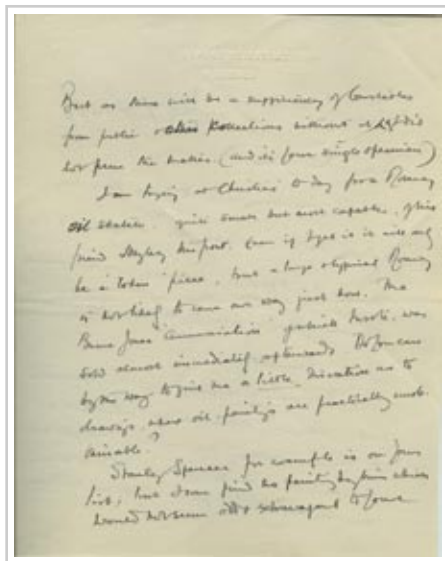 But as there will be a sufficiency of Constables
from public & other collections without it I did
not press the matter (and it's your single specimen)
I am trying at Christies to day for a Romney
oil sketch, quite small but most capable, of his
friend Hayley
be a token piece, but a large & typical Romney
is not likely to come our way just now. The
Burne Jones Annunciation was
sold almost immediately afterwards. Do you care
by the way to give me a little direction as to
drawings, where oil paintings are practically unob-
tainable?
Stanley Spencer for example is on your
list, but I can find no painting by him which
would not seem extravagant to you